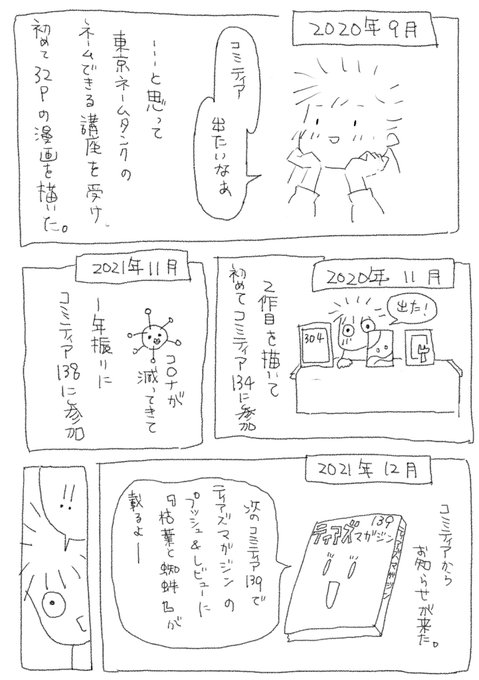 2020年9月
コミティア
出たいなぁ
…と思って
東京ネームタンクの
ネームできる講座を受け、
初めて32Pの漫画を描いた。
2020年11月
出た!
304
2作目を描いて
初めてコミティア134に参加
2021年11月
コロナが
減ってきて
1年振りに
コミティア138に参加
2021年12月
コミティアから
お知らせが来た。
139
ティアズマガジン
ティアズマガジン
次のコミティア139で
ティアズマガジンの
プッシュ&レビューに
『枯葉と蜘蛛』が
載るよー
!!